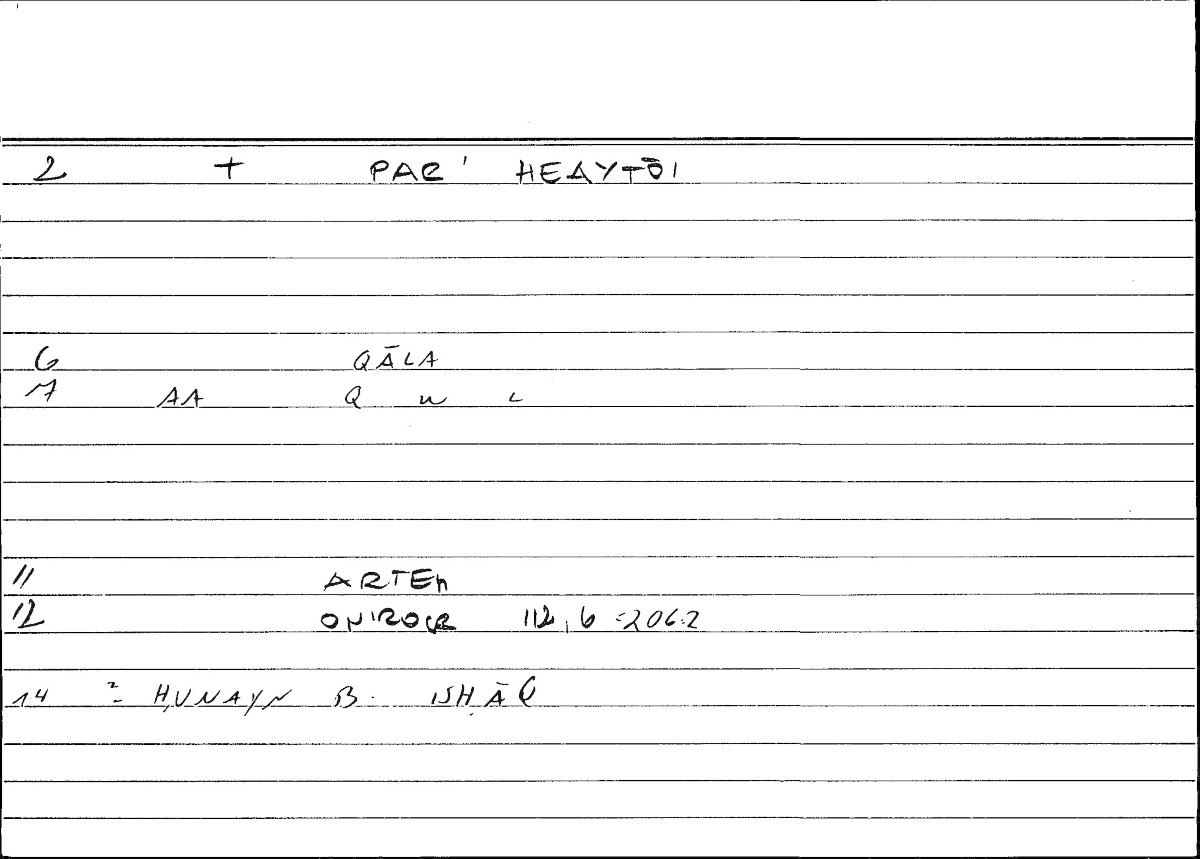 2 + PAR' HEAYTŌI
6 QĀLA
7 AA Q w L
11 ARTEM
12 ONIROCR 112,6 =206.2
14 ? ḤUNAYN B. ISḤĀQ